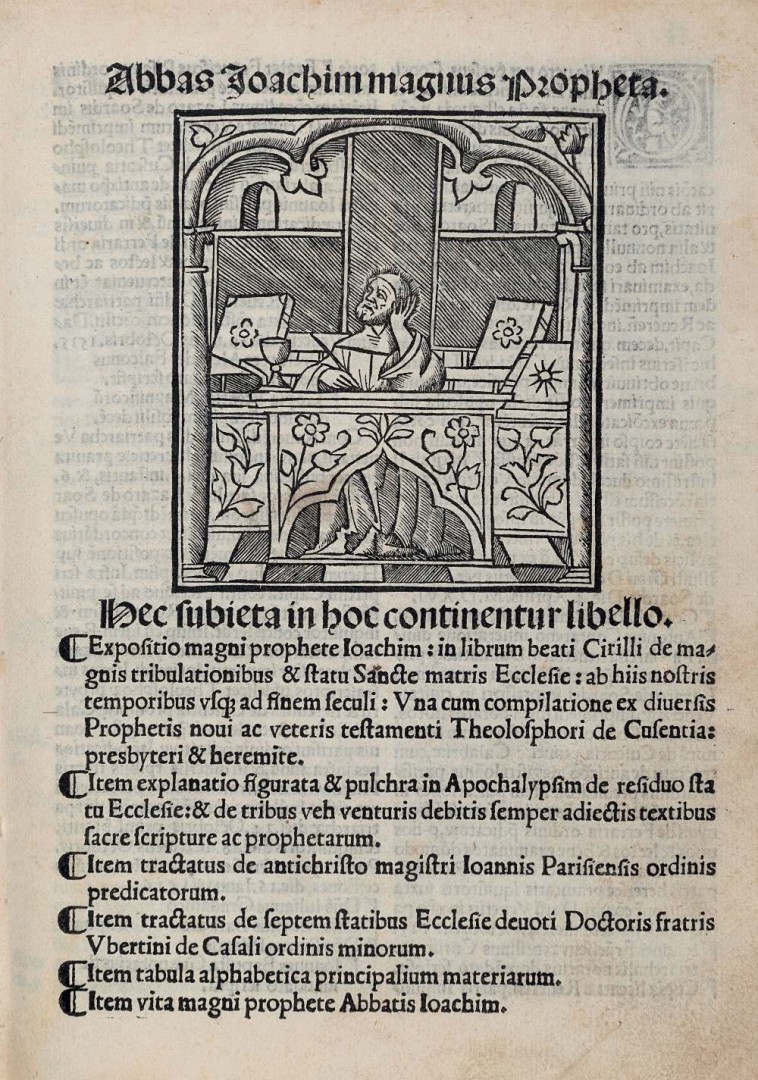 Abbas Ioachim magnus Propheta.
Hec subieta in hoc continentur libello.
¶ Expoſitio magni prophete Ioachim : in librum beati Cirilli de ma⸗
gnis tribulationibus & ſtatu Sancte matris Eccleſie : ab hiis noſtris
temporibus vſqꝫ ad finem ſeculi : Vna cum compilatione ex diuerſis
Prophetis noui ac veteris teſtamenti Theoloſphori de Cuſentia:
presbyteri & heremite.
¶ Item explanatio figurata & pulchra in Apochalypſim de reſiduo ſta
tu Eccleſie: & de tribus veh venturis debitis ſemper adiectis textibus
ſacre ſcripture ac prophetarum.
¶ Item tractatus de antichriſto magiſtri Ioannis Pariſienſis ordinis
predicatorum.
¶ Item tractatus de ſeptem ſtatibus Eccleſie deuoti Doctoris fratris
Vbertini de Caſali ordinis minorum.
¶ Item tabula alphabetica principalium materiarum.
¶ Item vita magni prophete Abbatis Ioachim.